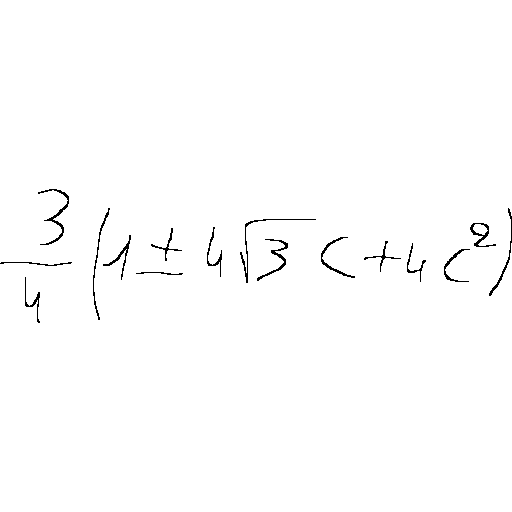 \frac{3}{4} (1 \pm 4\sqrt{3} c + 4c^2)